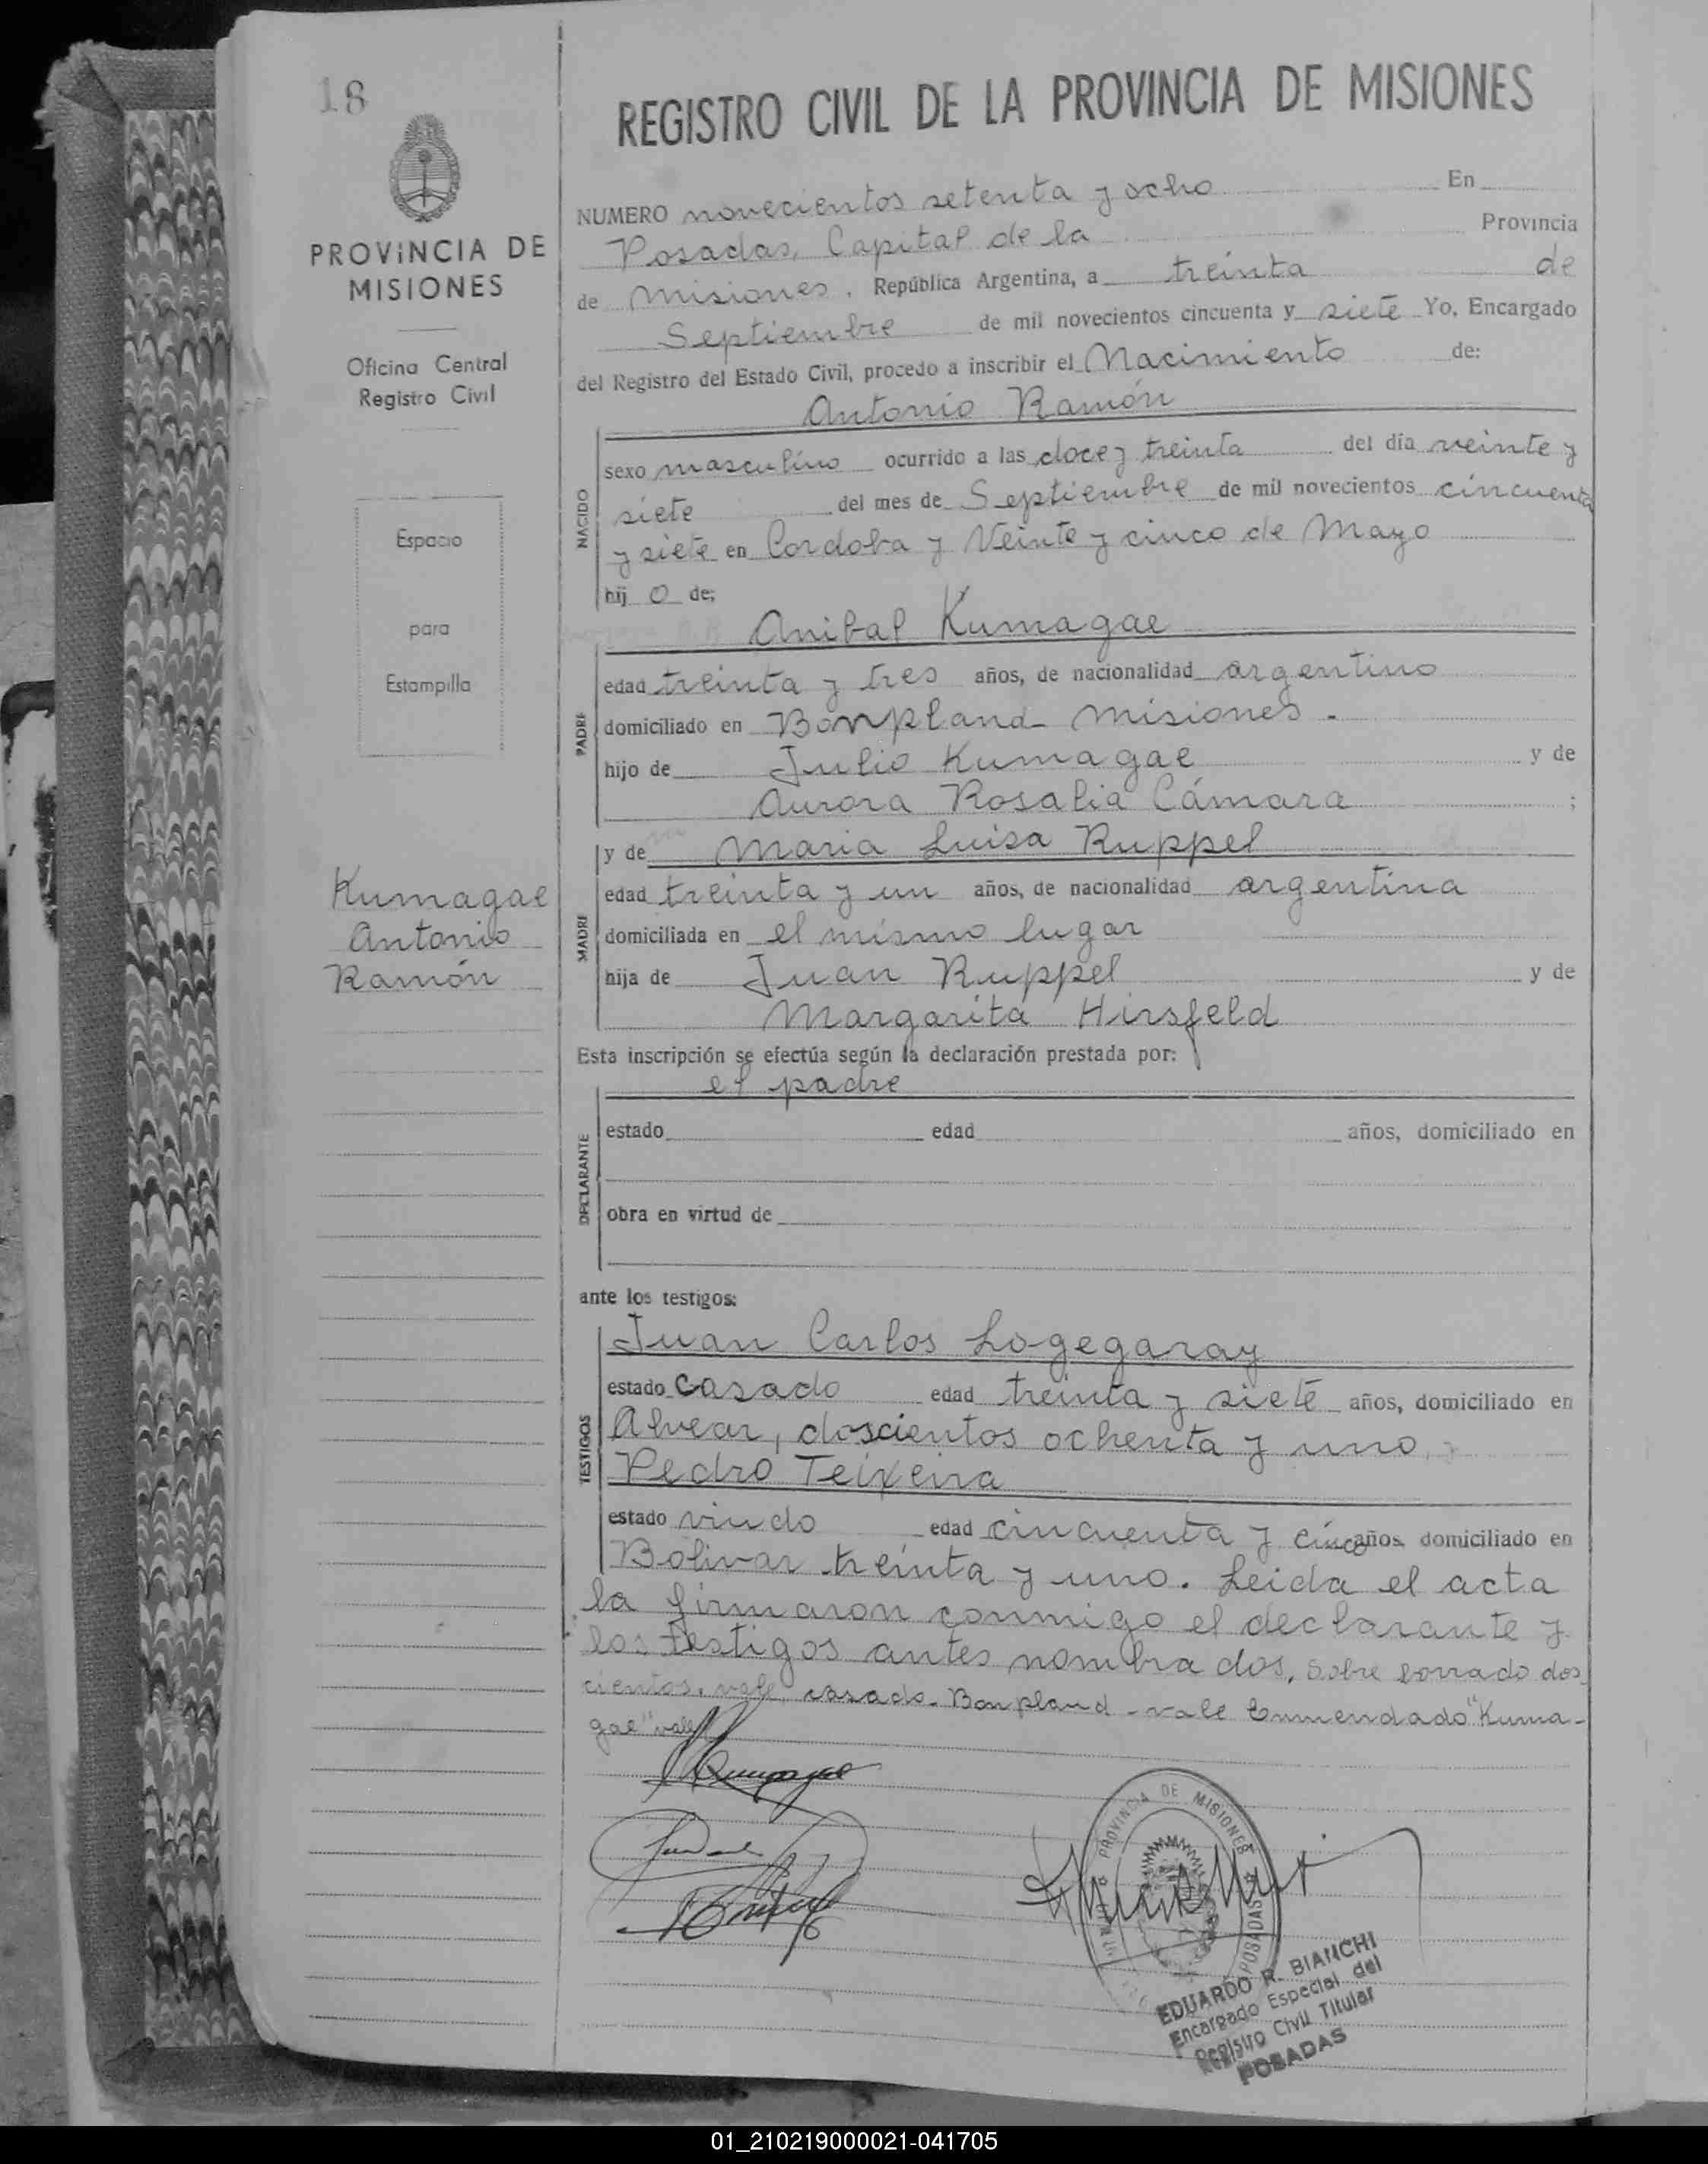 18
PROVINCIA DE
MISIONES
Oficina Central
Registro Civil
Espacio
para
Estampilla
Kumagae
Antonio
Ramón
REGISTRO CIVIL DE LA PROVINCIA DE MISIONES
NUMERO novecientos setenta y ocho En
Posadas, Capital de la Provincia
de Misiones, República Argentina, a treinta de
Septiembre de mil novecientos cincuenta y siete Yo, Encargado
del Registro del Estado Civil, procedo a inscribir el Nacimiento de:
Antonio Ramón
NACIDO
sexo masculino ocurrido a las doce y treinta del día veinte y
siete del mes de Septiembre de mil novecientos cincuenta
y siete en Cordoba y Veinte y cinco de Mayo
hij o de:
Anibal Kumagae
PADRE
edad treinta y tres años, de nacionalidad argentino
domiciliado en Bonpland - Misiones.
hijo de Julio Kumagae y de
Aurora Rosalia Cámara ;
y de Maria Luisa Ruppel
MADRE
edad treinta y un años, de nacionalidad argentina
domiciliada en el mismo lugar
hija de Juan Ruppel y de
Margarita Hirsfeld
Esta inscripción se efectúa según la declaración prestada por:
el padre
DECLARANTE
estado edad años, domiciliado en
obra en virtud de
ante los testigos:
Juan Carlos Logegaray
TESTIGOS
estado casado edad treinta y siete años, domiciliado en
Alvear, doscientos ochenta y uno, y
Pedro Teixeira
estado viudo edad cincuenta y cinco años, domiciliado en
Bolivar treinta y uno. Leida el acta
la firmaron conmigo el declarante y
los testigos antes nombrados, Sobre borrado dos
cientos, vale, casado - Bonpland - vale Enmendado "Kuma-
gae" vale
Kumagae
PROVINCIA DE MISIONES
POSADAS
EDUARDO R. BIANCHI
Encargado Especial del
Registro Civil Titular
POSADAS
01_210219000021-041705